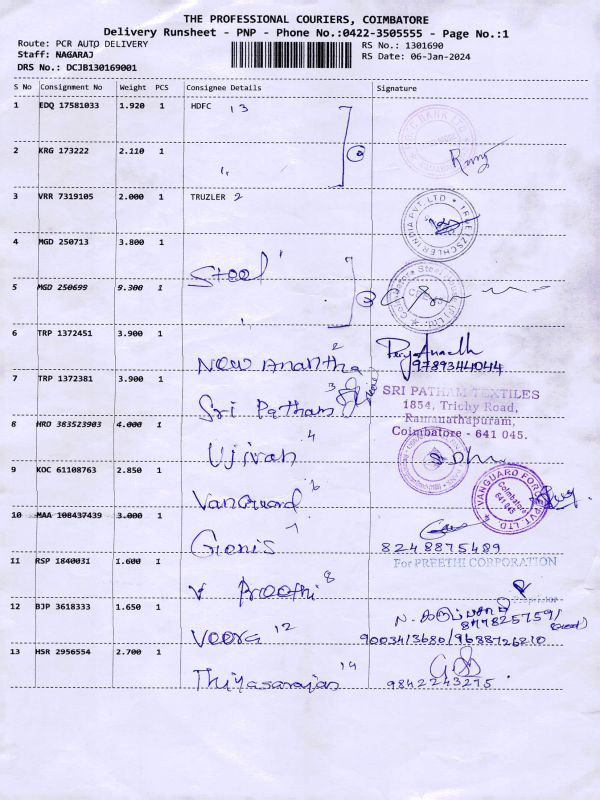 THE PROFESSIONAL COURIERS, COIMBATORE
Delivery Runsheet - PNP - Phone No.:0422-3505555 - Page No.:1
Route: PCR AUTO DELIVERY
RS No.: 1301690
Staff: NAGARAJ
RS Date: 06-Jan-2024
DRS No.: DCJB130169001
S No Consignment No Weight PCS Consignee Details Signature
1 EDQ 17581033 1.920 1 HDFC 13
2 KRG 173222 2.110 1
3 VRR 7319105 2.000 1 TRUZLER 2
4 MGD 250713 3.800 1
Steel
5 MGD 250699 9.300 1
6 TRP 1372451 3.900 1
New Anantha 2
9789344044
7 TRP 1372381 3.900 1
Sri Patham 3
SRI PATHAM TEXTILES
1854, Trichy Road,
Ramanathapuram,
Coimbatore - 641 045.
8 HRD 383523903 4.000 1
Ujivan 4
9 KOC 61108763 2.850 1
Vanguard 6
VANGUARD FORGE PVT. LTD
Coimbatore
641 045
10 MAA 108437439 3.000 1
Gionis 7
8248875489
11 RSP 1840031 1.600 1
For PREETHI CORPORATION
V Preethi 8
12 BJP 3618333 1.650 1
Veera 12
9003413680/9688726210
13 HSR 2956554 2.700 1
Thiyagarajan 14
9842243275